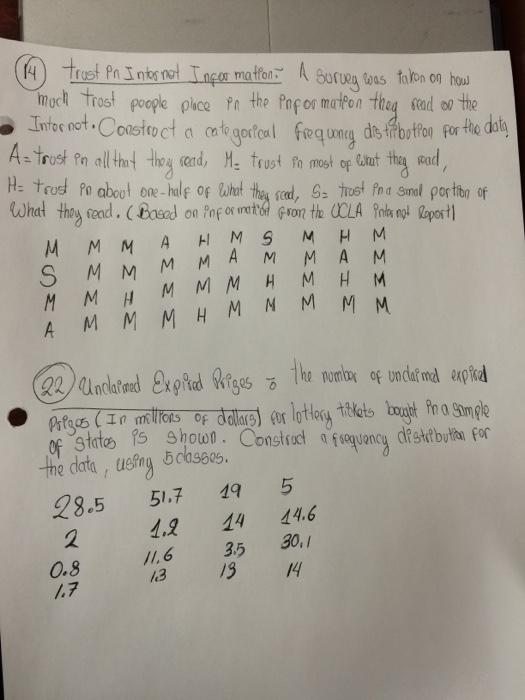 14 Trust in Internet Information:- A survey was taken on how
much trust people place in the information they read on the
Internet. Construct a categorical frequency distribution for the data
A = trust in all that they read, M = trust in most of what they read,
H = trust in about one-half of what they read, S = trust in a smal portion of
what they read. (Based on information from the UCLA internet Report)
M M M A H M S M H M
S M M M M A M M A M
M M H M M M H M H M
A M M M H M M M M M
22 Unclaimed Expired Prizes : The number of unclaimed expired
Prizes (In millions of dollars) for lottery tickets bought in a sample
of states is shown. Construct a frequency distribution for
the data, using 5 classes.
28.5 51.7 19 5
2 1.2 14 14.6
0.8 11.6 3.5 30.1
1.7 1.3 13 14